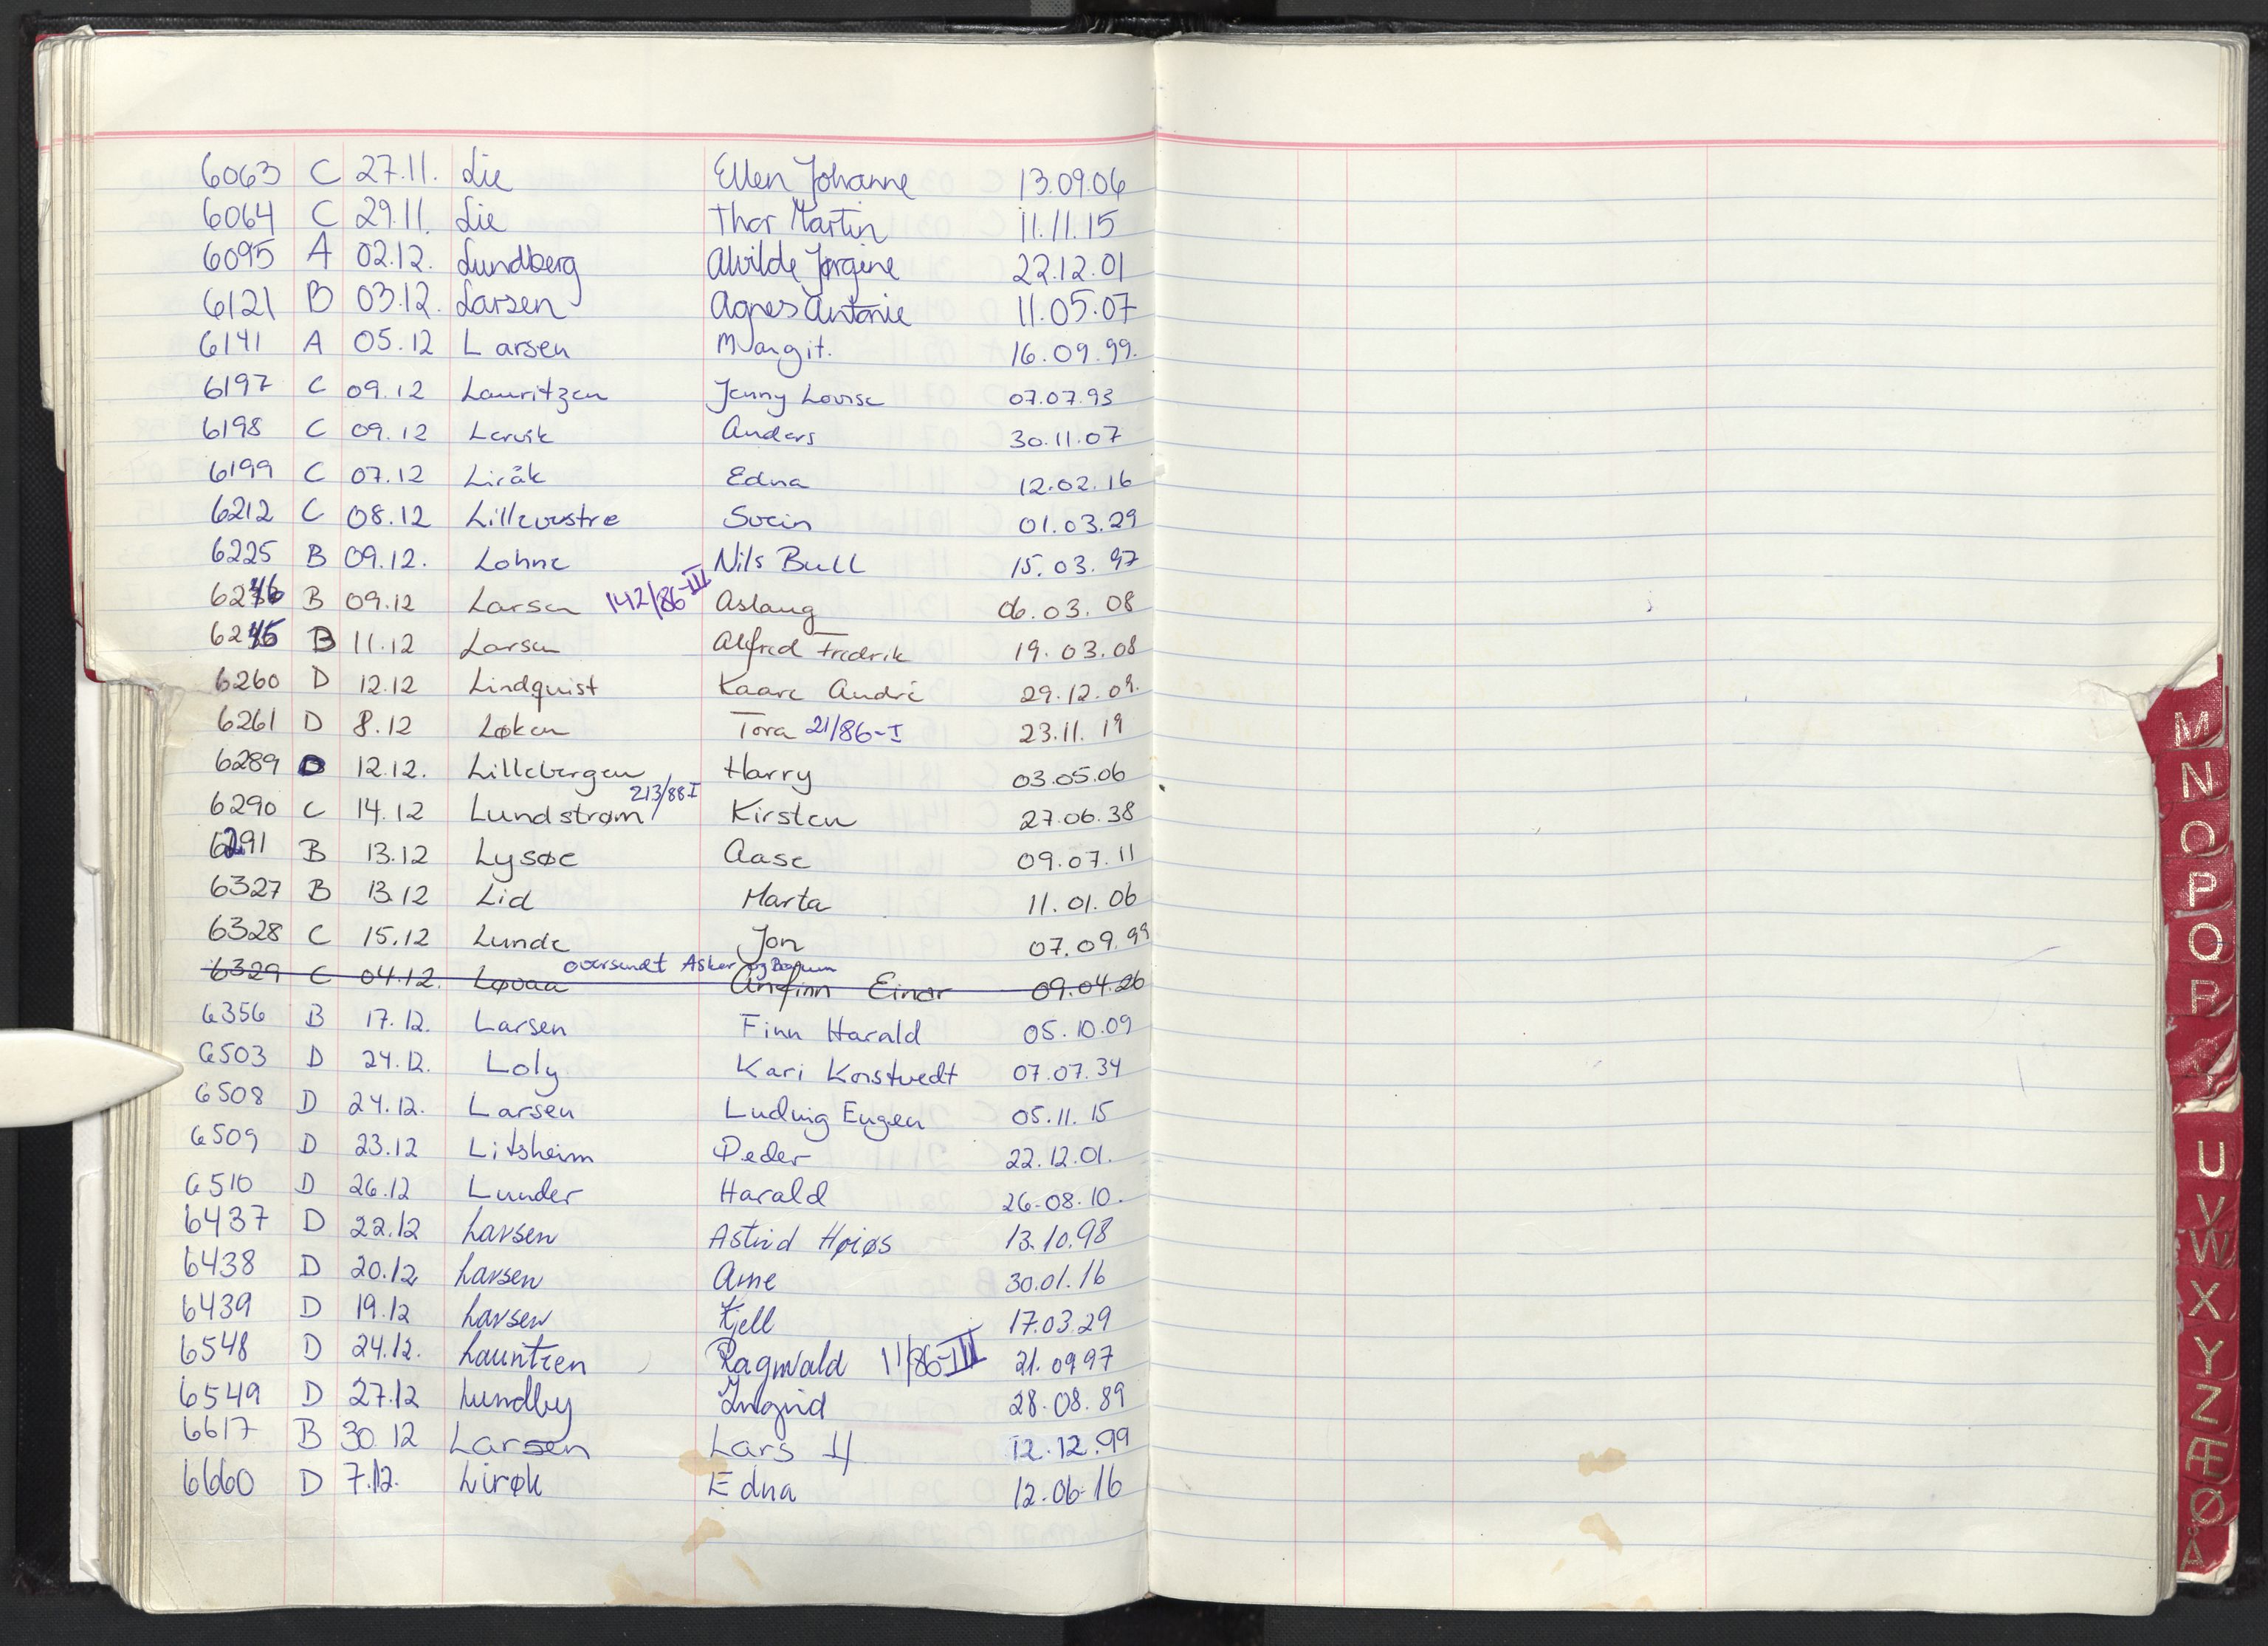 6063 C 27.11. Lie Ellen Johanne 13.09.06
6064 C 29.11. Lie Thor Martin 11.11.15
6095 A 02.12. Lundberg Alvilde Jørgine 22.12.01
6121 B 03.12. Larsen Agnes Antonie 11.05.07
6141 A 05.12 Larsen Margit. 16.09.99.
6197 C 09.12 Lauritzen Jenny Lovise 07.07.93
6198 C 09.12 Lervik Anders 30.11.07
6199 C 07.12 Liråk Edna 12.02.16
6212 C 08.12 Lillevestre Svein 01.03.29
6225 B 09.12. Lohne Nils Bull 15.03.97
6246 B 09.12 Larsen 142/86-III Aslaug 06.03.08
6245 B 11.12 Larsen Alfred Fredrik 19.03.08
6260 D 12.12 Lindquist Kaare André 29.12.09.
6261 D 8.12 Løken Tora 21/86-I 23.11.19
6289 D 12.12. Lillebergen Harry 03.05.06
6290 C 14.12 Lundstrøm 213/88 I Kirsten 27.06.38
6291 B 13.12 Lysøe Aase 09.07.11
6327 B 13.12 Lid Marta 11.01.06
6328 C 15.12 Lunde Jon 07.09.99
oversendt Asker og Bærum
6329 C 04.12. Løvaa Anfinn Einar 09.04.26
6356 B 17.12. Larsen Finn Harald 05.10.09
6503 D 24.12. Loly Kari Korstvedt 07.07.34
6508 D 24.12. Larsen Ludvig Eugen 05.11.15
6509 D 23.12 Litsheim Peder 22.12.01.
6510 D 26.12 Lunder Harald 26.08.10.
6437 D 22.12 Larsen Astrid Høiøs 13.10.98
6438 D 20.12 Larsen Arne 30.01.16
6439 D 19.12 Larsen Kjell 17.03.29
6548 D 24.12. Lauritzen Ragnvald 11/86-III 21.09 97
6549 D 27.12 Lundby Ingrid 28.08.89
6617 B 30.12 Larsen Lars H 12.12.99
6660 D 7.12. Lirøk Edna 12.06.16
M
N
O
P
Q
R
U
V
W
X
Y
Z
Æ
Ø
Å